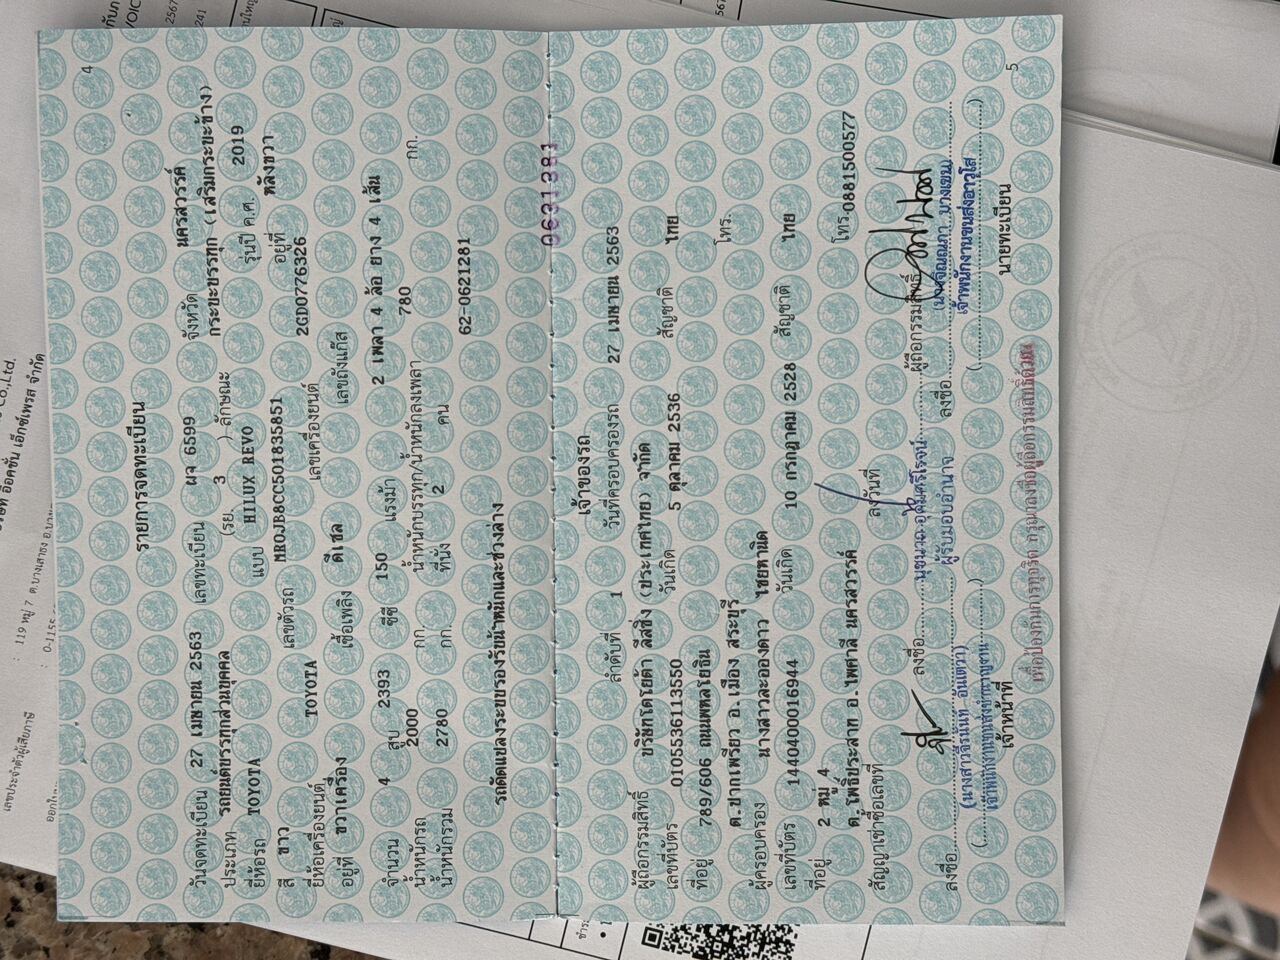 4
รายการจดทะเบียน
วันจดทะเบียน 27 เมษายน 2563 เลขทะเบียน ผจ 6599 จังหวัด นครสวรรค์
ประเภท รถยนต์บรรทุกส่วนบุคคล (รย. 3 ) ลักษณะ กระบะบรรทุก (เสริมกระบะข้าง)
ยี่ห้อรถ TOYOTA แบบ HILUX REVO รุ่นปี ค.ศ. 2019
สี ขาว เลขตัวรถ MR0JB8CC501835851 อยู่ที่ หลังขวา
ยี่ห้อเครื่องยนต์ TOYOTA เลขเครื่องยนต์ 2GD0776326
อยู่ที่ ขวาเครื่อง เชื้อเพลิง ดีเซล เลขถังแก๊ส
จำนวน 4 สูบ 2393 ซีซี 150 แรงม้า 2 เพลา 4 ล้อ ยาง 4 เส้น
น้ำหนักรถ 2000 กก. น้ำหนักบรรทุก/น้ำหนักลงเพลา 780 กก.
น้ำหนักรวม 2780 กก. ที่นั่ง 2 คน
62-0621281
รถดัดแปลงระบบรองรับน้ำหนักและช่วงล่าง
เจ้าของรถ
ลำดับที่ 1 วันที่ครอบครองรถ 27 เมษายน 2563
ผู้ถือกรรมสิทธิ์ บริษัทโตโยต้า ลีสซิ่ง (ประเทศไทย) จำกัด
เลขที่บัตร 0105536113550 วันเกิด 5 ตุลาคม 2536 สัญชาติ ไทย
ที่อยู่ 789/606 ถนนพหลโยธิน โทร.
ต.ปากเพรียว อ.เมือง สระบุรี
ผู้ครอบครอง นางสาวละอองดาว ไทยหานิด
เลขที่บัตร 1440400016944 วันเกิด 10 กรกฎาคม 2528 สัญชาติ ไทย
ที่อยู่ 2 หมู่ 4 โทร. 0881500577
ต.โพธิ์ประสาท อ.ไพศาลี นครสวรรค์
สัญญาเช่าซื้อเลขที่ ลงวันที่
ลงชื่อ ผู้ถือกรรมสิทธิ์
ผู้รับมอบอำนาจ
ลงชื่อ ลงชื่อ
(นางสาวจีรนันท์ อินเตวา)
เจ้าพนักงานขนส่งชำนาญงาน เจ้าพนักงานขนส่งอาวุโส
เจ้าหน้าที่ นายทะเบียน
เพื่อป้องกันการทุจริต กรุณาลงชื่อผู้ถือกรรมสิทธิ์ด้วย
5
Co.,Ltd.
อ๊อคชั่น เอ็กซ์เพรส จำกัด
119 หมู่ 7 ต.บางเสาธง
เลขประจำตัวผู้เสียภาษี